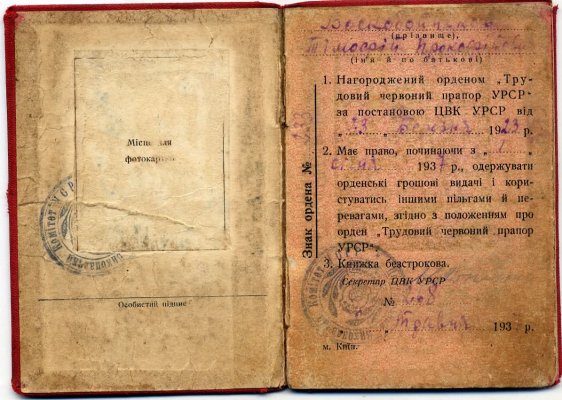 Місце для
фотокартки
Особистий підпис
(прізвище),
(ім'я й по батькові)
1. Нагороджений орденом „Тру-
довий червоний прапор УРСР"
за постановою ЦВК УРСР від
192 р.
2. Має право, починаючи з „ "
1937 р., одержувати
орденські грошові видачі і кори-
стуватись іншими пільгами й пе-
ревагами, згідно з положенням про
орден „Трудовий червоний прапор
УРСР"
3. Книжка безстрокова.
Секретар ЦВК УРСР
№
Травня 193 р.
м. Київ.
Знак ордена №